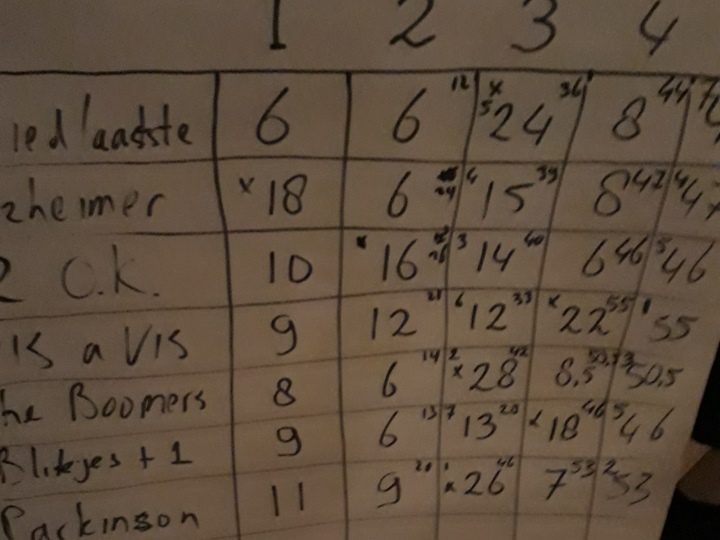 1 2 3 4
ied laatste 6 6 12 x 5 24 36 8 44
zheimer x 18 6 24 4 15 39 8 47 4 47
2 O.K. 10 x 16 26 3 14 40 6 46 5 46
is a VIS 9 12 21 6 12 33 x 22 55 1 55
he Boomers 8 6 14 2 x 28 42 8,5 50,5 3 50,5
Blikjes + 1 9 6 15 7 13 28 x 18 46 5 46
Parkinson 11 9 20 1 x 26 46 7 53 2 53